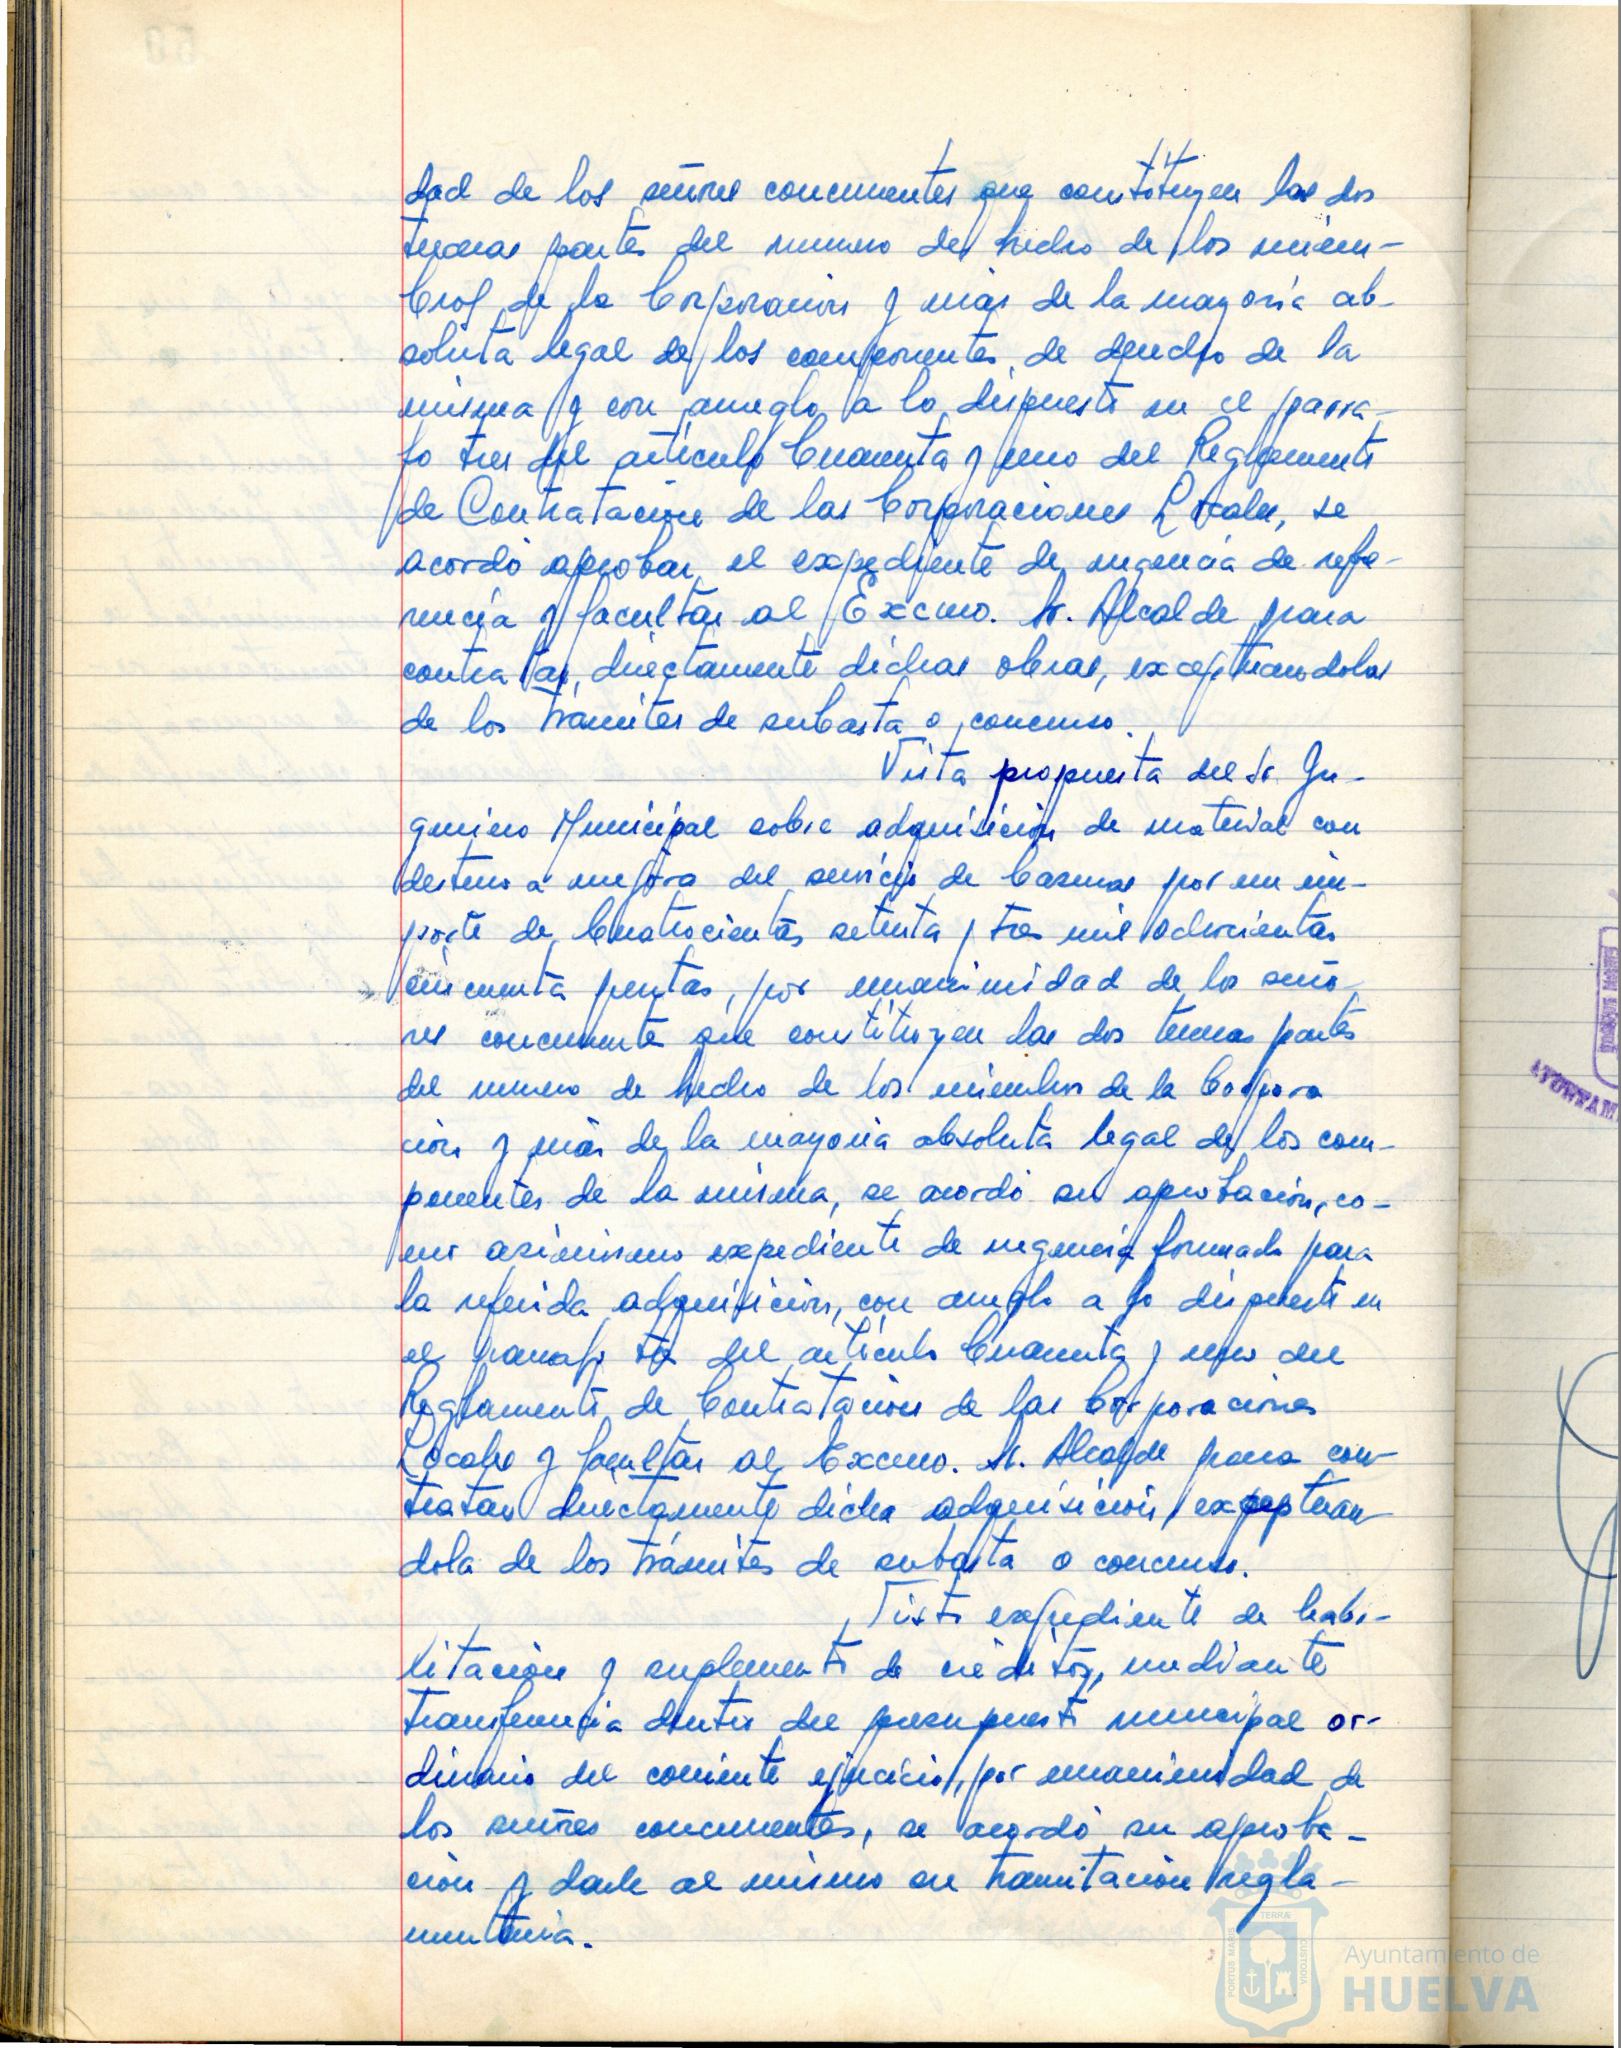 dad de los señores concurrentes que constituyen las dos
terceras partes del numero de hecho de los miem-
bros de la Corporacion y más de la mayoría ab-
soluta legal de los componentes de derecho de la
misma y con arreglo a lo dispuesto en el parra-
fo tres del artículo Cuarenta y uno del Reglamento
de Contratación de las Corporaciones Locales, se
acordó aprobar el expediente de urgencia de refe-
rencia y facultar al Excmo. Sr. Alcalde para
contratar directamente dichas obras, exceptuandolas
de los trámites de subasta o concurso.
Vista propuesta del Sr. In-
geniero Municipal sobre adquisición de material con
destino a mejora del servicio de basuras por un im-
porte de Cuatrocientas setenta y tres mil ochocientas
cincuenta pesetas, por unanimidad de los seño-
res concurrentes que constituyen las dos terceras partes
del numero de hecho de los miembros de la Corpora
ción y más de la mayoria absoluta legal de los com-
ponentes de la misma, se acordó su aprobación, co-
mo asimismo expediente de urgencia formado para
la referida adquisición, con arreglo a lo dispuesto en
el parrafo tres del artículo Cuarenta y uno del
Reglamento de Contratación de las Corporaciones
Locales y facultar al Excmo. Sr. Alcalde para con-
tratar directamente dicha adquisición, exceptuan-
dola de los trámites de subasta o concurso.
Visto expediente de habi-
litación y suplemento de créditos, mediante
transferencia dentro del presupuesto municipal or-
dinario del corriente ejercicio, por unanimidad de
los señores concurrentes, se acordó su aproba-
ción y darle al mismo su tramitación regla-
mentaria.
PORTUS MARIS
TERRÆ
CUSTODIA
Ayuntamiento de
HUELVA